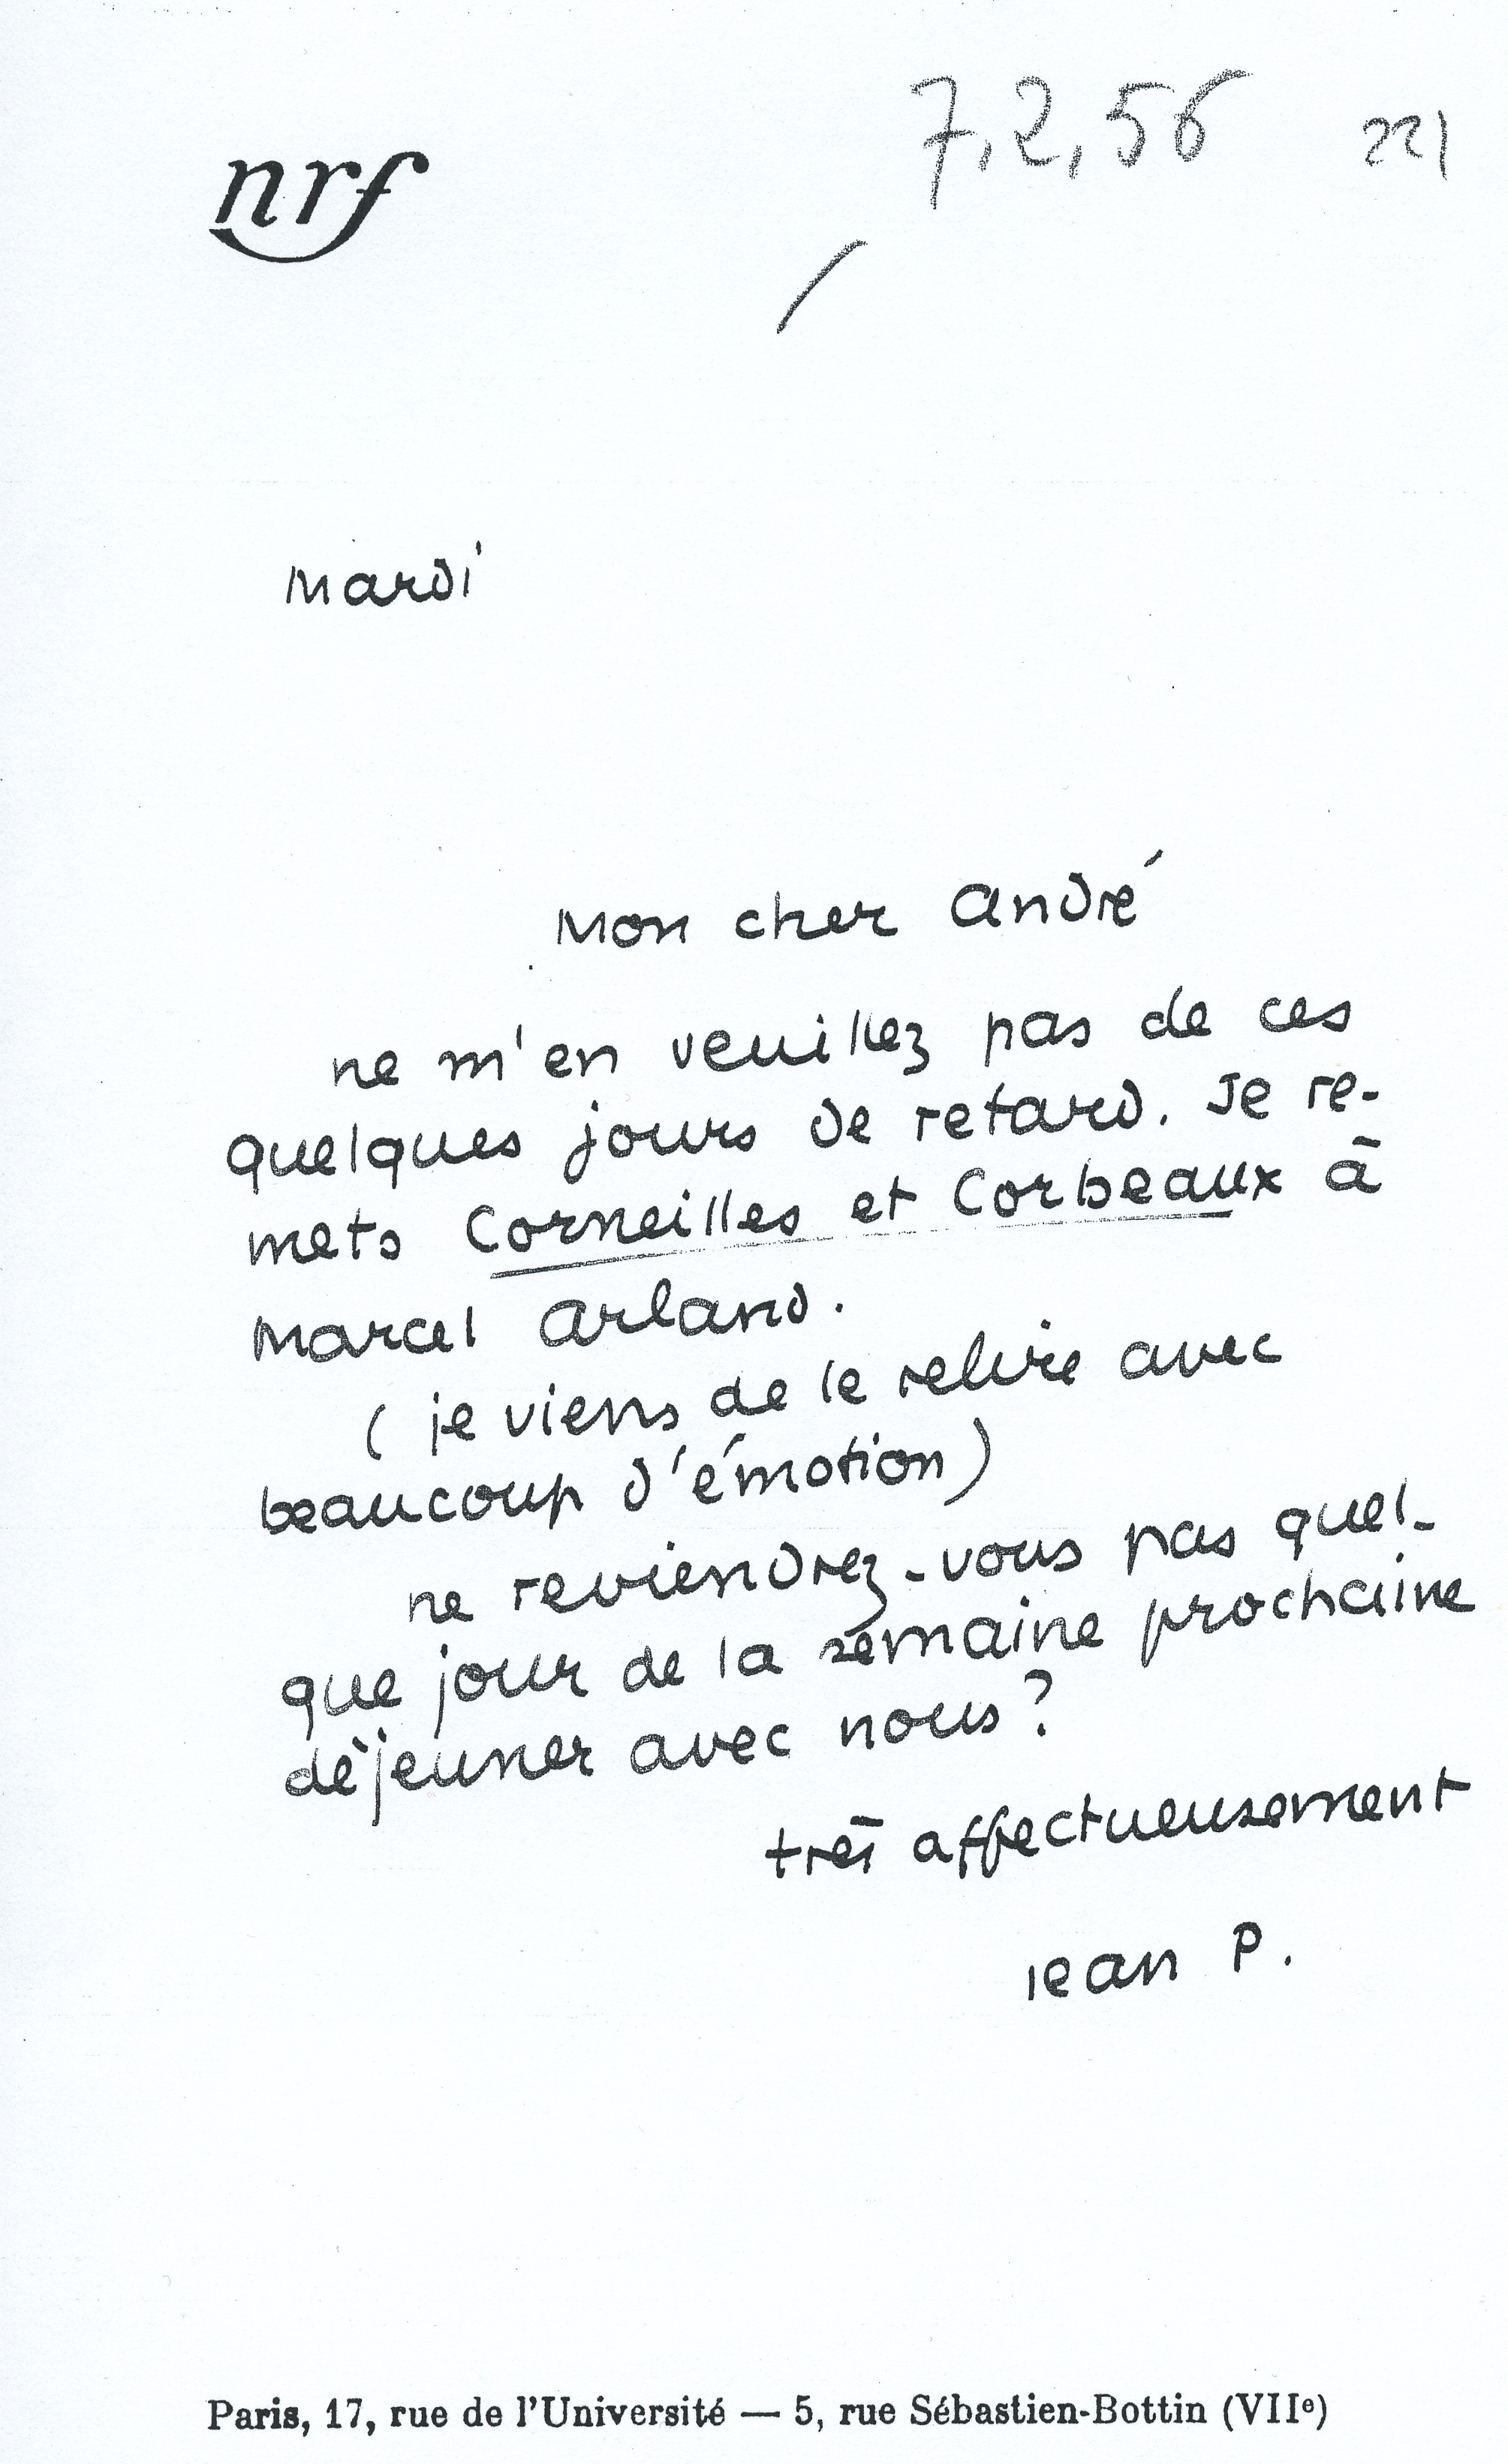 7,2,56 221
nrf
Mardi
Mon cher André
ne m'en veuillez pas de ces
quelques jours de retard. Je re-
mets Corneilles et Corbeaux à
Marcel Arland.
( je viens de le relire avec
beaucoup d'émotion)
ne reviendrez-vous pas quel-
que jour de la semaine prochaine
déjeuner avec nous ?
très affectueusement
Jean P.
Paris, 17, rue de l'Université — 5, rue Sébastien-Bottin (VIIe)